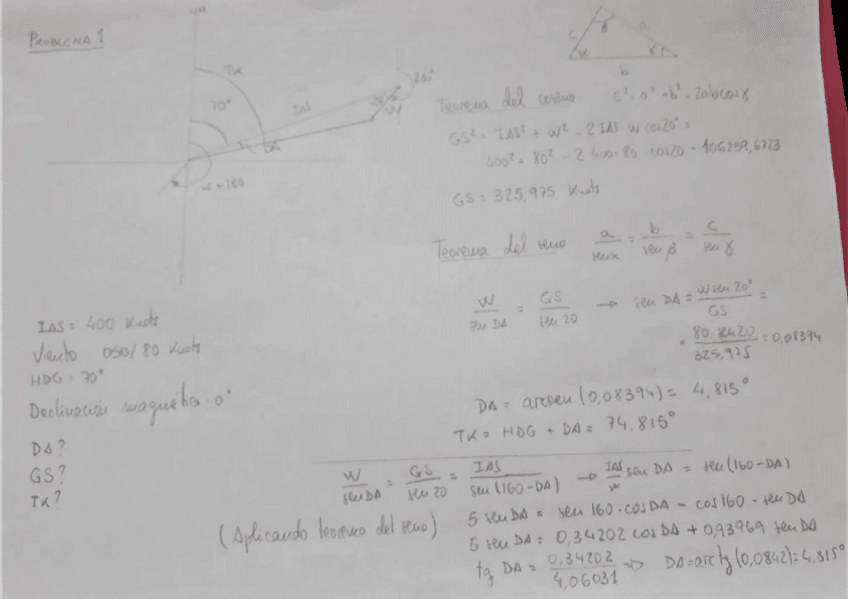 PROBLEMA 1
NM
TK
70°
IAS
DA
W
20°
W+180
c
β
a
α
γ
b
Teorema del coseno c² = a² + b² - 2ab cos γ
GS² = IAS² + W² - 2 IAS · W cos 20° =
400² + 80² - 2·400·80 · cos 20 = 106259,6723
GS = 325,975 Knots
Teorema del seno a/sen α = b/sen β = c/sen γ
W/sen DA = GS/sen 20 → sen DA = W sen 20°/GS =
= 80 · sen 20/325,975 = 0,08394
DA = arcsen (0,08394) = 4,815°
TK = HDG + DA = 74,815°
IAS = 400 Knots
Viento 050/80 Knots
HDG = 70°
Declinación magnética = 0°
DA?
GS?
TK?
W/sen DA = GS/sen 20 = IAS/sen (160-DA) → IAS/W sen DA = sen (160-DA)
(Aplicando teorema del seno)
5 sen DA = sen 160 · cos DA - cos 160 · sen DA
5 sen DA = 0,34202 cos DA + 0,93969 sen DA
tg DA = 0,34202/4,06031 ⇒ DA = arctg (0,0842) = 4,815°